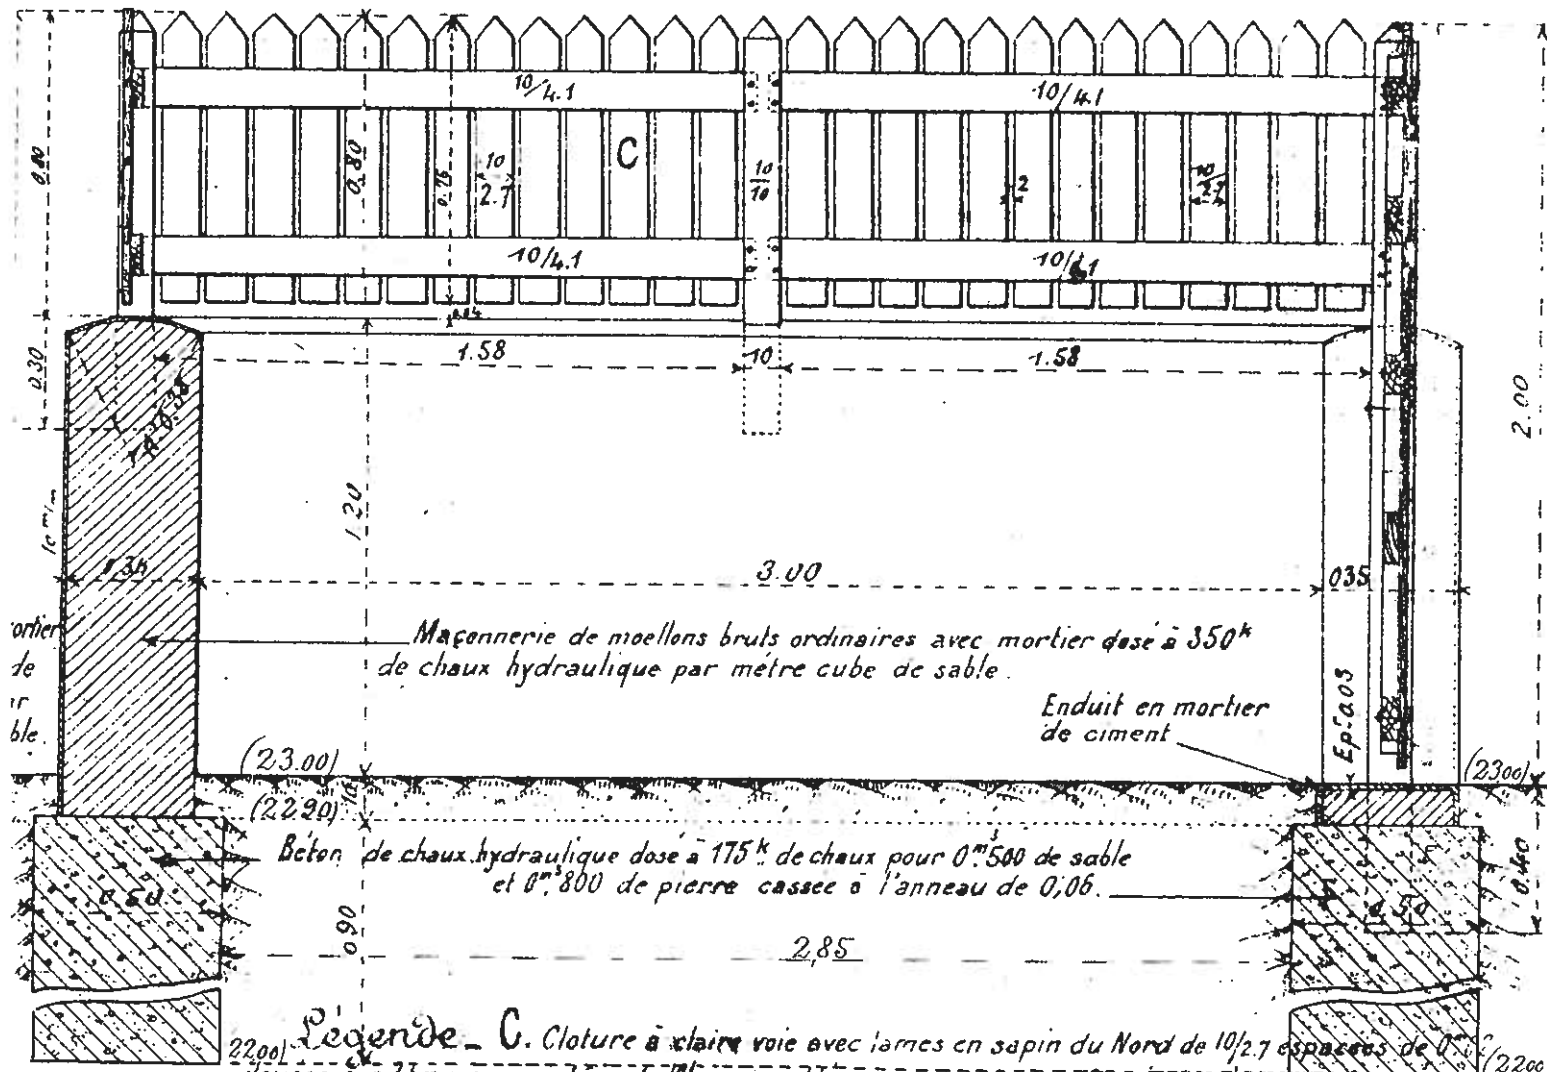 10/4.1
10/4.1
0.80
0.80
0.75
10
2.7
C
10
10
2
10
2.7
10/4.1
10/4.1
0.04
0.30
1.58
10
1.58
2.00
1.20
3.00
035
Maçonnerie de moellons bruts ordinaires avec mortier dosé à 350k
de chaux hydraulique par métre cube de sable.
ortier
de
ar
ble.
Enduit en mortier
de ciment
Epr 0.03
(23.00)
(2300)
10
(2290)
Béton de chaux hydraulique dosé à 175k de chaux pour 0m3500 de sable
et 0m3800 de pierre cassée à l'anneau de 0,06.
0.50
0.50
0.40
0.90
2,85
Légende_ C. Cloture à claire voie avec lames en sapin du Nord de 10/2.7 espacées de
2200)
(2200